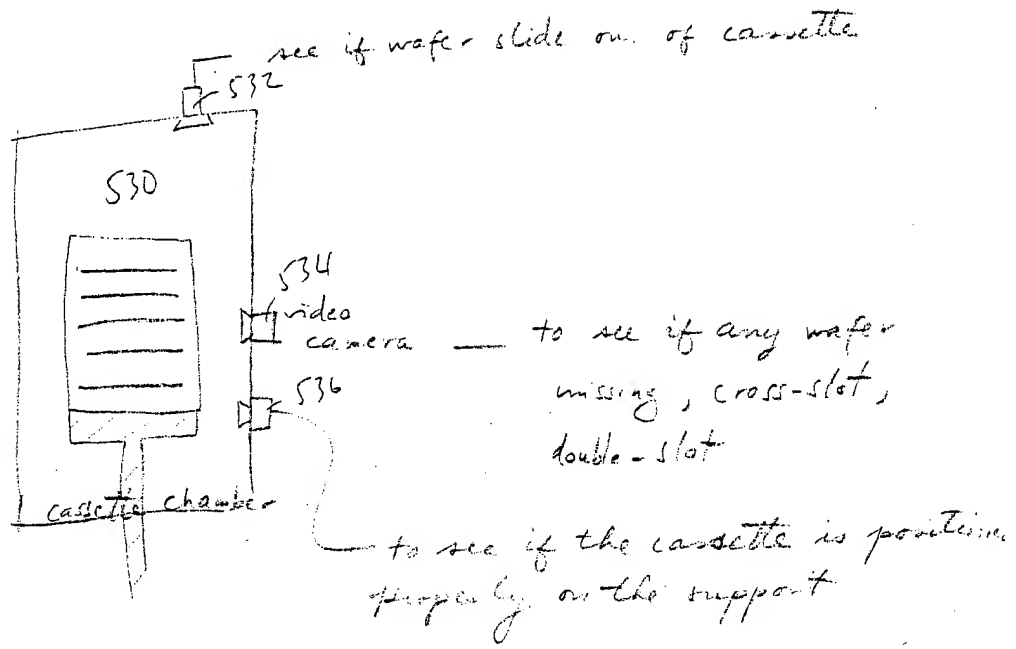 see if wafer slide ou of cassette
532
530
534
video
camera — to see if any wafer
missing, cross-slot,
double-slot
536
cassette chamber
to see if the cassette is position
properly on the support